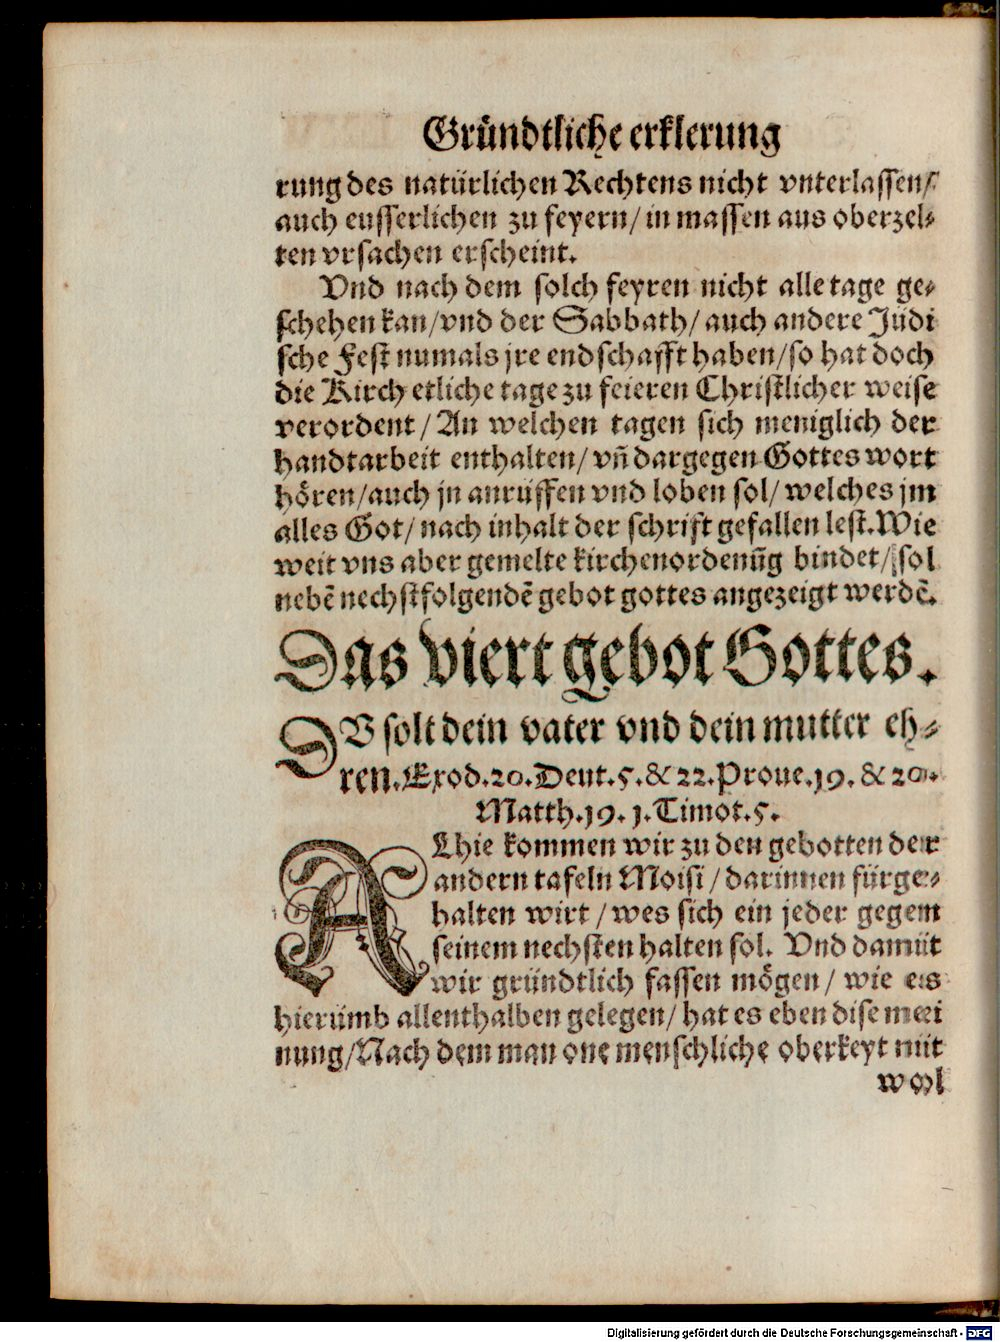 Gründtliche erklerung
rung des natürlichen Rechtens nicht vnterlassen/
auch eusserlichen zu feyern/ in massen aus oberzel⸗
ten vrsachen erscheint.
Vnd nach dem solch feyren nicht alle tage ge⸗
schehen kan/vnd der Sabbath/ auch andere Jüdi
sche Fest numals jre endschafft haben/so hat doch
die Kirch etliche tage zu feieren Christlicher weise
verordent/ An welchen tagen sich meniglich der
handtarbeit enthalten/ vn̄ dargegen Gottes wort
hören/auch jn anrüffen vnd loben sol/ welches jm
alles Got/ nach inhalt der schrift gefallen lest. Wie
weit vns aber gemelte kirchenordenūg bindet/ sol
nebē nechstfolgendē gebot gottes angezeigt werdē.
Das viert gebot Gottes.
DV solt dein vater vnd dein mutter eh⸗
ren. Exod. 20. Deut. 5. & 22. Proue. 19. & 20.
Matth. 19. 1. Timot. 5.
ALhie kommen wir zu den gebotten der
andern tafeln Moisi/ darinnen fürge⸗
halten wirt/ wes sich ein jeder gegem
seinem nechsten halten sol. Vnd damit
wir gründtlich fassen mögen/ wie es
hierümb allenthalben gelegen/ hat es eben dise mei
nung/ Nach dem man one menschliche oberkeyt nit
wol
Digitalisierung gefördert durch die Deutsche Forschungsgemeinschaft - DFG